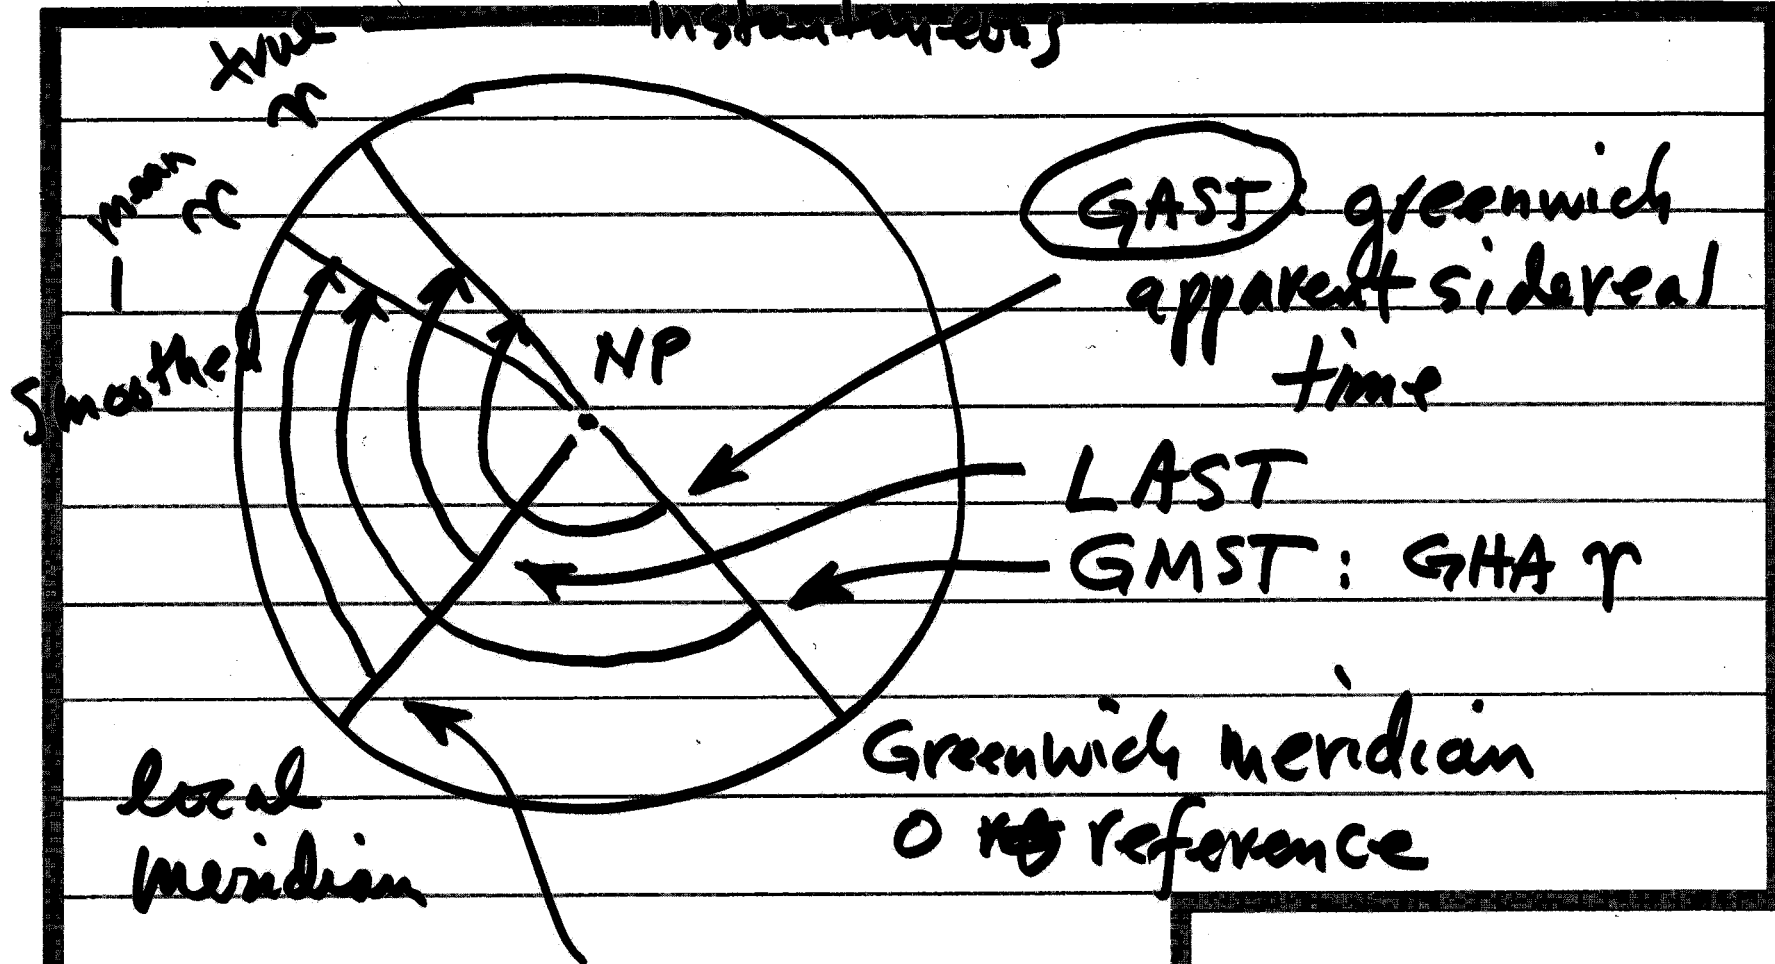 true — Instantaneous
♈
mean ♈
|
smoothed
NP
GAST: greenwich
apparent sidereal
time
LAST
GMST: GHA ♈
Greenwich meridian
0 reference
local
meridian